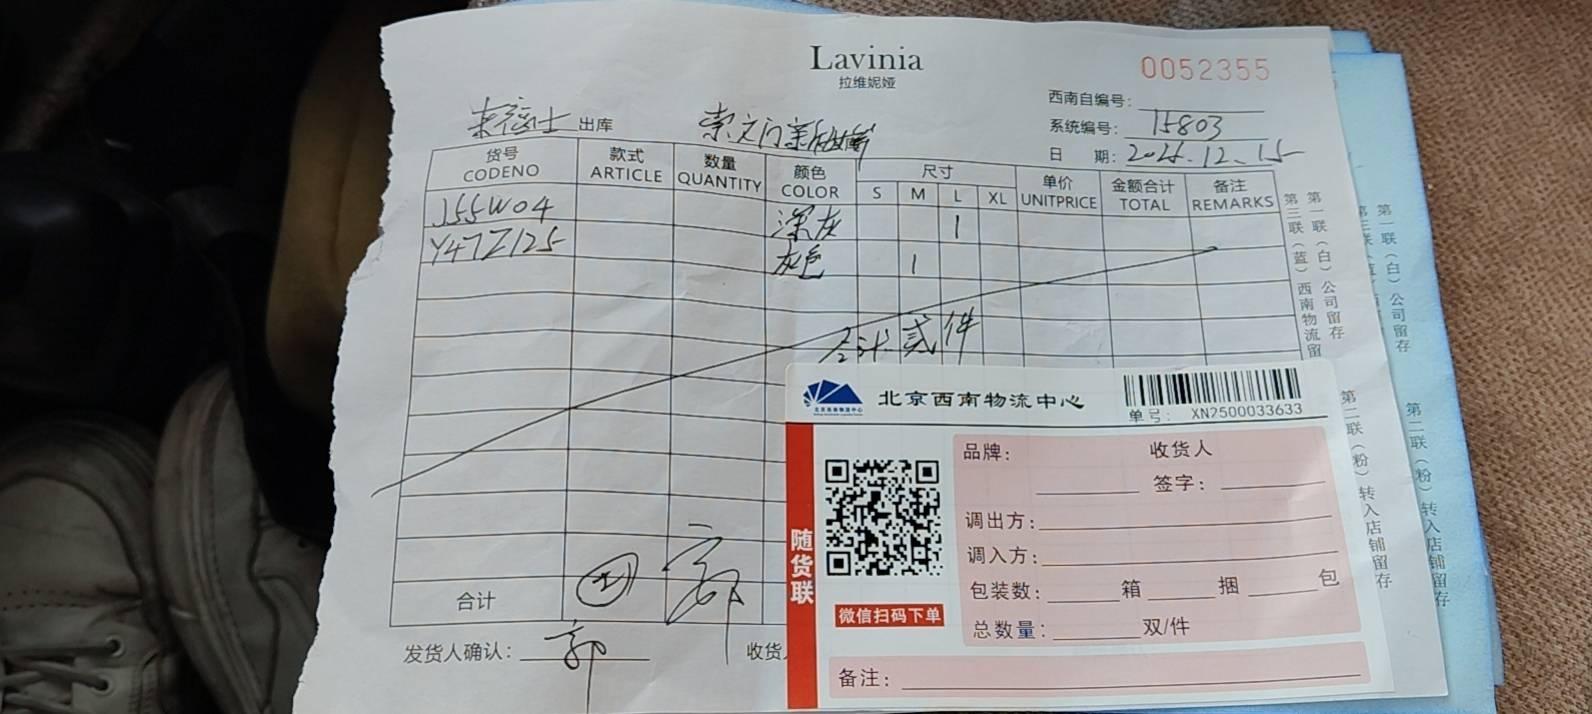 Lavinia
拉维妮娅
0052355
西南自编号:
系统编号: 15803
日 期: 2025.12.15
出库
货号 款式 数量 颜色 尺寸 单价 金额合计 备注
CODENO ARTICLE QUANTITY COLOR S M L XL UNITPRICE TOTAL REMARKS
J55W04 深灰 1
Y47Z125 灰色 1
合计 贰件
合计
发货人确认: 郭
收货
第一联(白)公司留存
第二联(粉)转入店铺留存
第三联(蓝)西南物流留
北京西南物流中心
单号: XN2500033633
随货联
微信扫码下单
品牌: 收货人
签字:
调出方:
调入方:
包装数: 箱 捆 包
总数量: 双/件
备注:
第一联(白)公司留存
第二联(粉)转入店铺留存